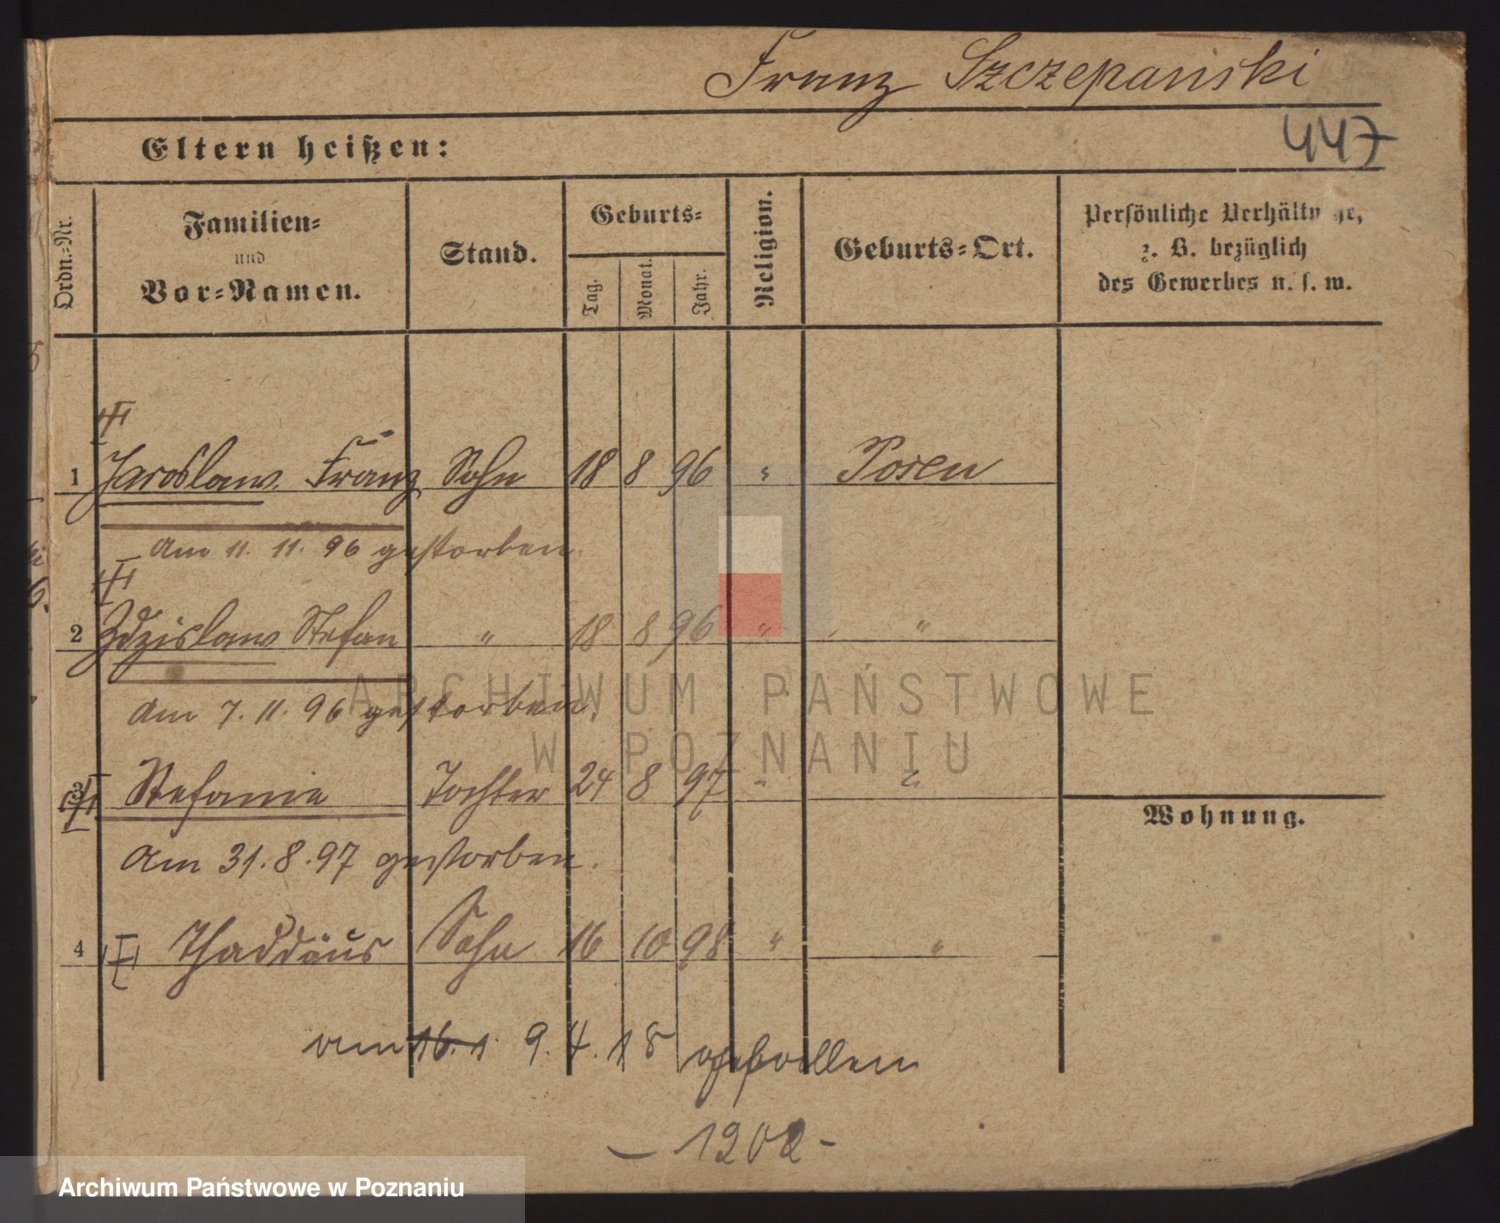 Franz Szczepański
447
Eltern heißen:
Ordn.-Nr.
Familien-
und
Vor-Namen.
Stand.
Geburts-
Tag.
Monat.
Jahr.
Religion.
Geburts-Ort.
Persönliche Verhältn ße,
z. B. bezüglich
des Gewerbes u. s. w.
1 Jaroslaw Franz Sohn 18 8 96 " Posen
am 11. 11. 96 gestorben.
2 Zdzislaw Stefan " 18 8 96 " "
am 7. 11. 96 gestorben.
3 Stefanie Tochter 24 8 97 " "
am 31. 8. 97 gestorben.
Wohnung.
4 Thaddäus Sohn 16 10 98 " "
am 16. 1. 9. 4. 18 gefallen
- 1202 -
ARCHIWUM PAŃSTWOWE
W POZNANIU
Archiwum Państwowe w Poznaniu